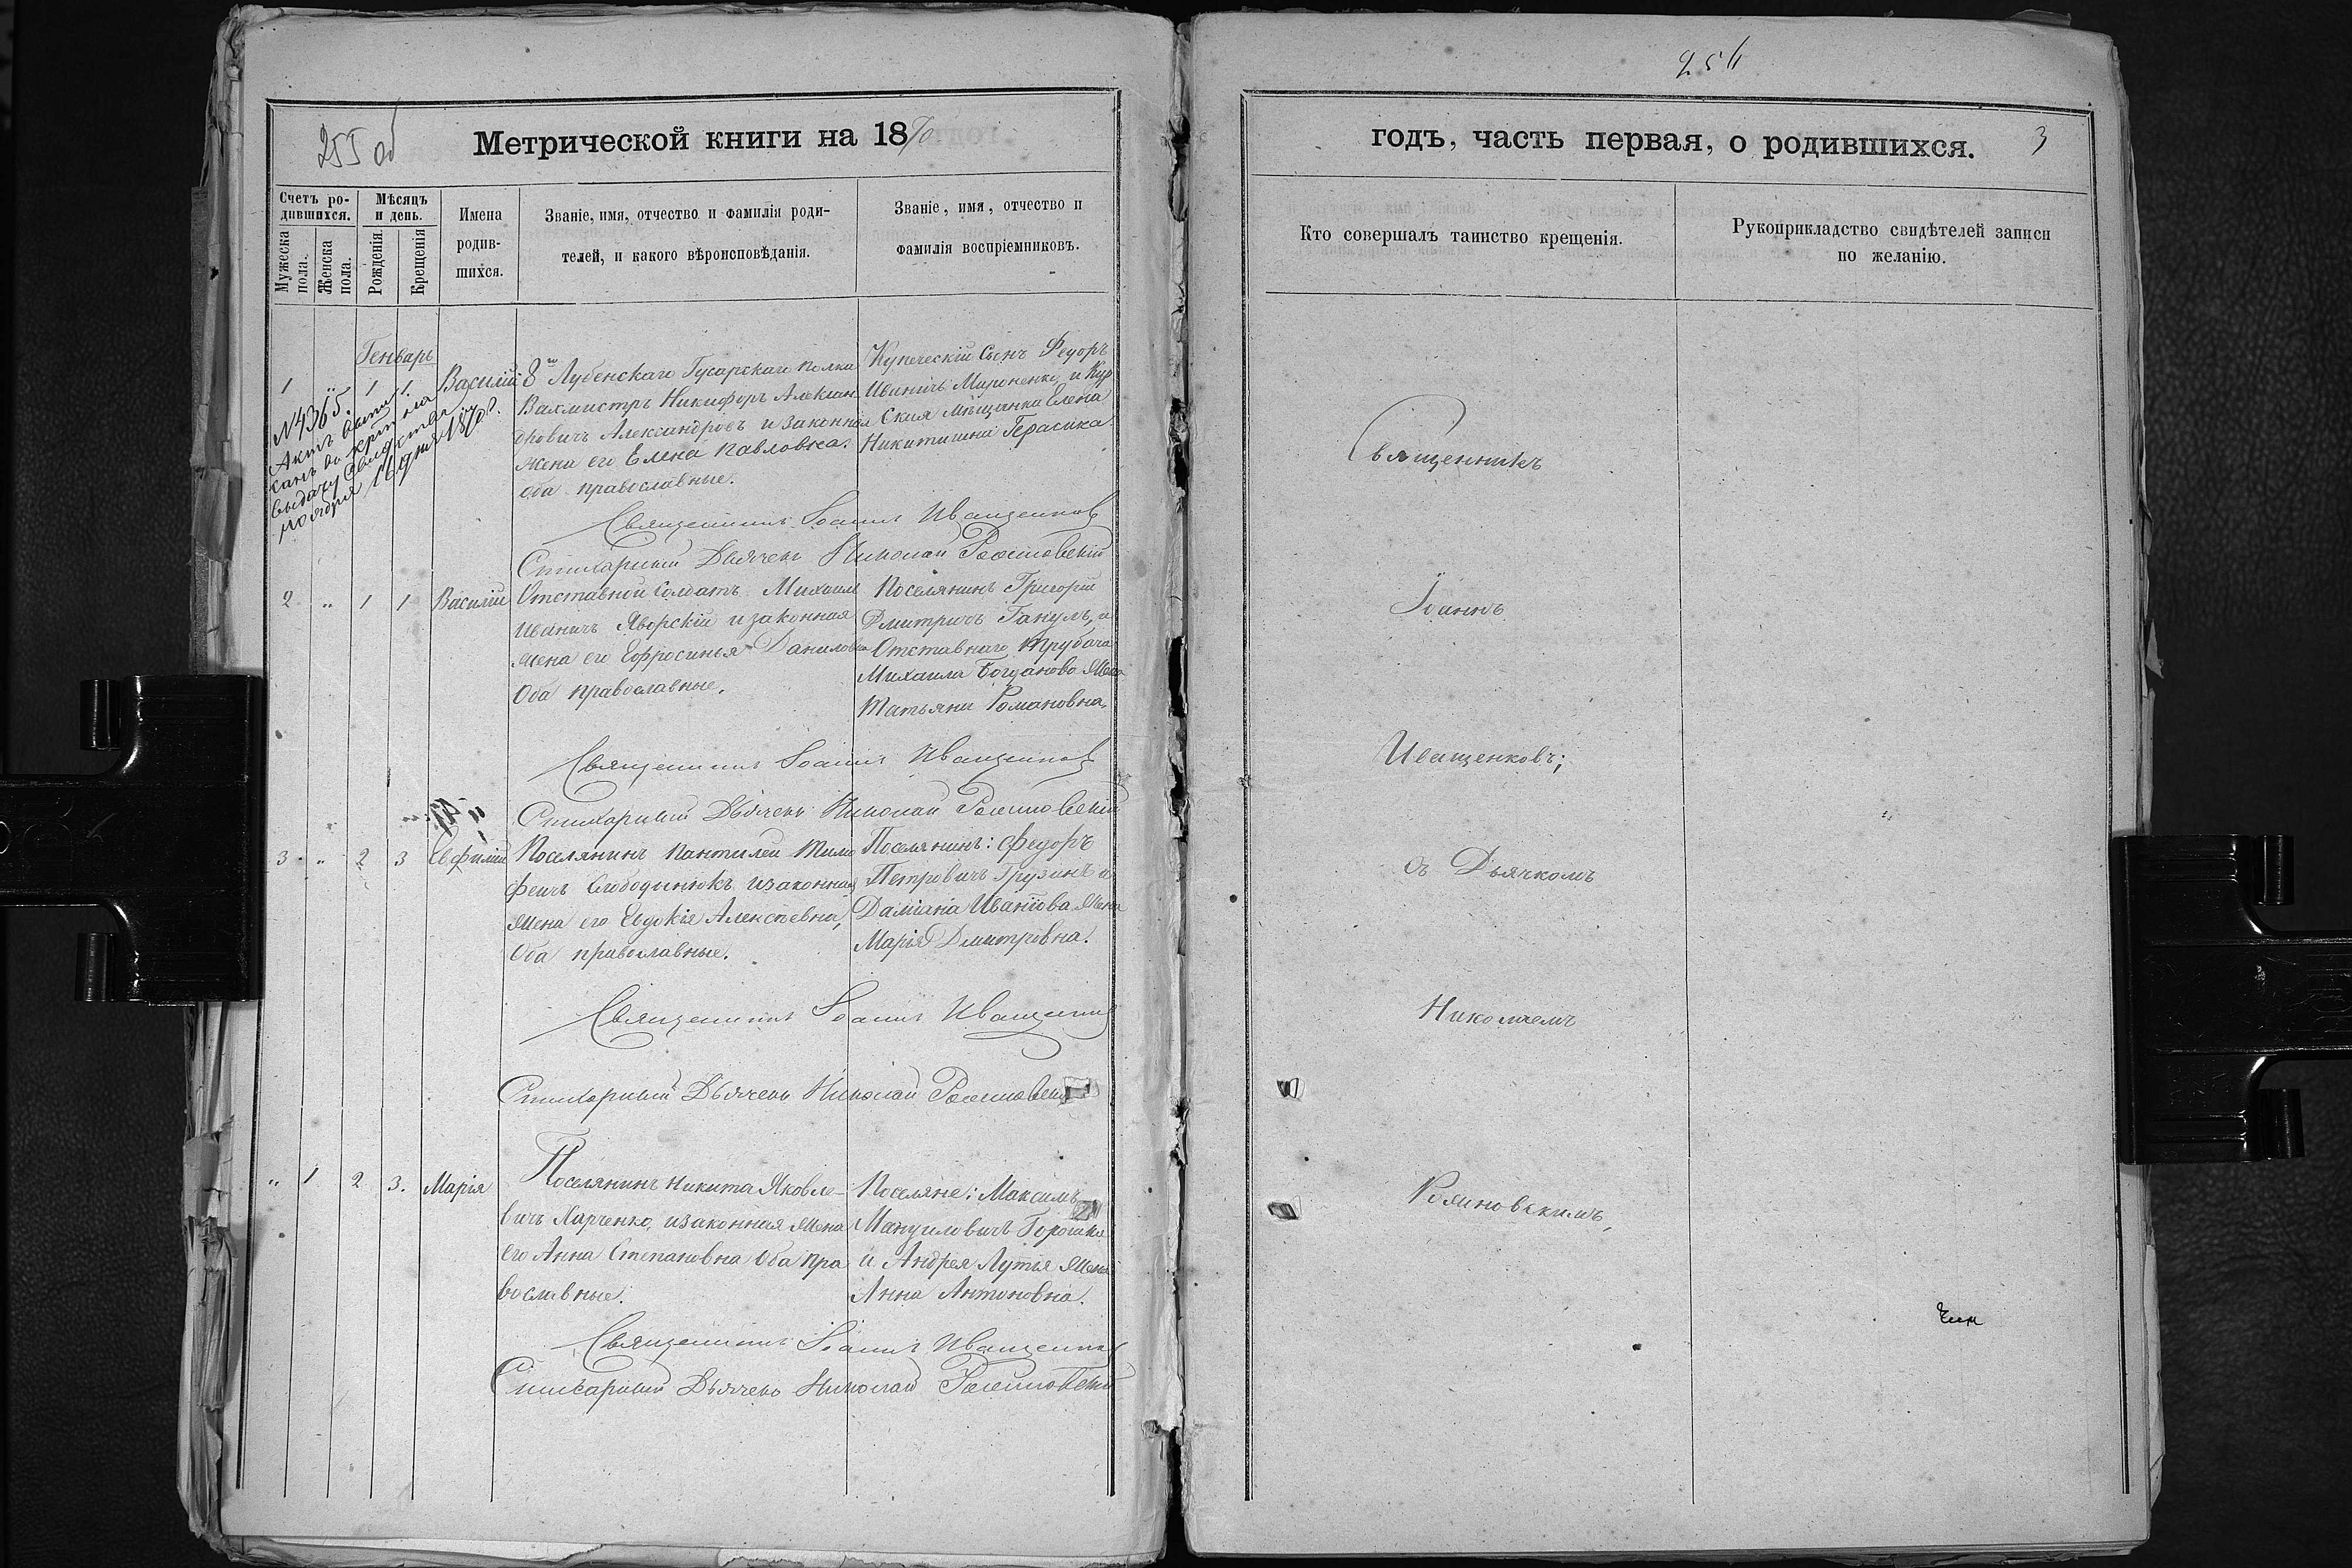 255 об
Метрической книги на 1870
Счетъ родившихся.
Мѣсяцъ и день.
Мужеска пола.
Женска пола.
Рожденія.
Крещенія
Имена родившихся.
Званіе, имя, отчество и фамилія родителей, и какого вѣроисповѣданія.
Званіе, имя, отчество и фамилія воспріемниковъ.
Генварь
1 " 1 1 Василій
№4365.
Актъ
выдачу
ноября 16 дня 1870 г.
8го Лубенскаго Гусарскаго полка
Вахмистръ Никифоръ Алексан
дровичъ Александровъ и законная
жена его Елена Павловна.
оба православные.
Купеческій Сынъ Федоръ
Иваничъ Мироненко, и Кур
ская мѣщанка Елена
Никитишна Герасика.
Священникъ Іоаннъ Иващенковъ
Стихарный Дьячекъ Николай
2 " 1 1 Василій
Отставной солдатъ Михаилъ
Иваничъ Яворскій и законная
жена его Ефросинья Даниловна
Оба православные.
Поселянинъ Григорій
Дмитричъ Ганулъ, и
Отставнаго трубача
Михаила Богданова жена
Татьяна Романовна.
Священникъ Іоаннъ Иващенковъ
Стихарный Дьячекъ Николай
3 " 2 3 Евфимій
Поселянинъ Пантилей Тимо
феичъ Слободинюкъ и законная
жена его Евдокія Алексѣевна,
Оба православные.
Поселянинъ: Федоръ
Петровичъ Грузинъ и
Даміана Иванова жена
Марія Дмитровна.
Священникъ Іоаннъ Иващенковъ
Стихарный Дьячекъ Николай
" 1 2 3. Марія
Поселянинъ Никита Яковле-
вичъ Харченко, и законная жена
его Анна Степановна Оба пра
вославные.
Поселяне: Максимъ
Мануиловичъ
и Андрея Лутья жена
Анна Антоновна.
Священникъ Іоаннъ Иващенковъ
Стихарный Дьячекъ Николай
254
годъ, часть первая, о родившихся.
3
Кто совершалъ таинство крещенія.
Рукоприкладство свидѣтелей записи по желанію.
Священникъ
Іоаннъ
Иващенковъ;
съ Дьячкомъ
Николаемъ